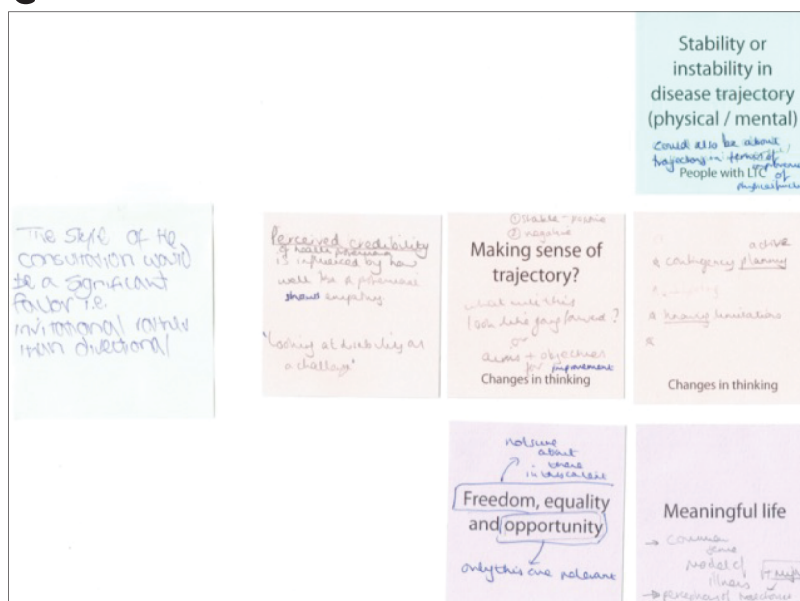 Stability or
instability in
disease trajectory
(physical / mental)
could also be about
trajectory in terms of
People with LTC of
The style of the
consultation would
be a significant
factor i.e.
invitational rather
than directional
Perceived credibility
is influenced by how
well the
should empathy
"Looking at disability as
a challenge"
① stable - positive
② negative
Making sense of
trajectory?
what will this
look like going forward?
or
aims + objectives
for improvement
Changes in thinking
active
contingency planning
knowing limitations
Changes in thinking
not sure
about
these
Freedom, equality
and opportunity
only this one relevant
Meaningful life
→ common
sense
model of
illness